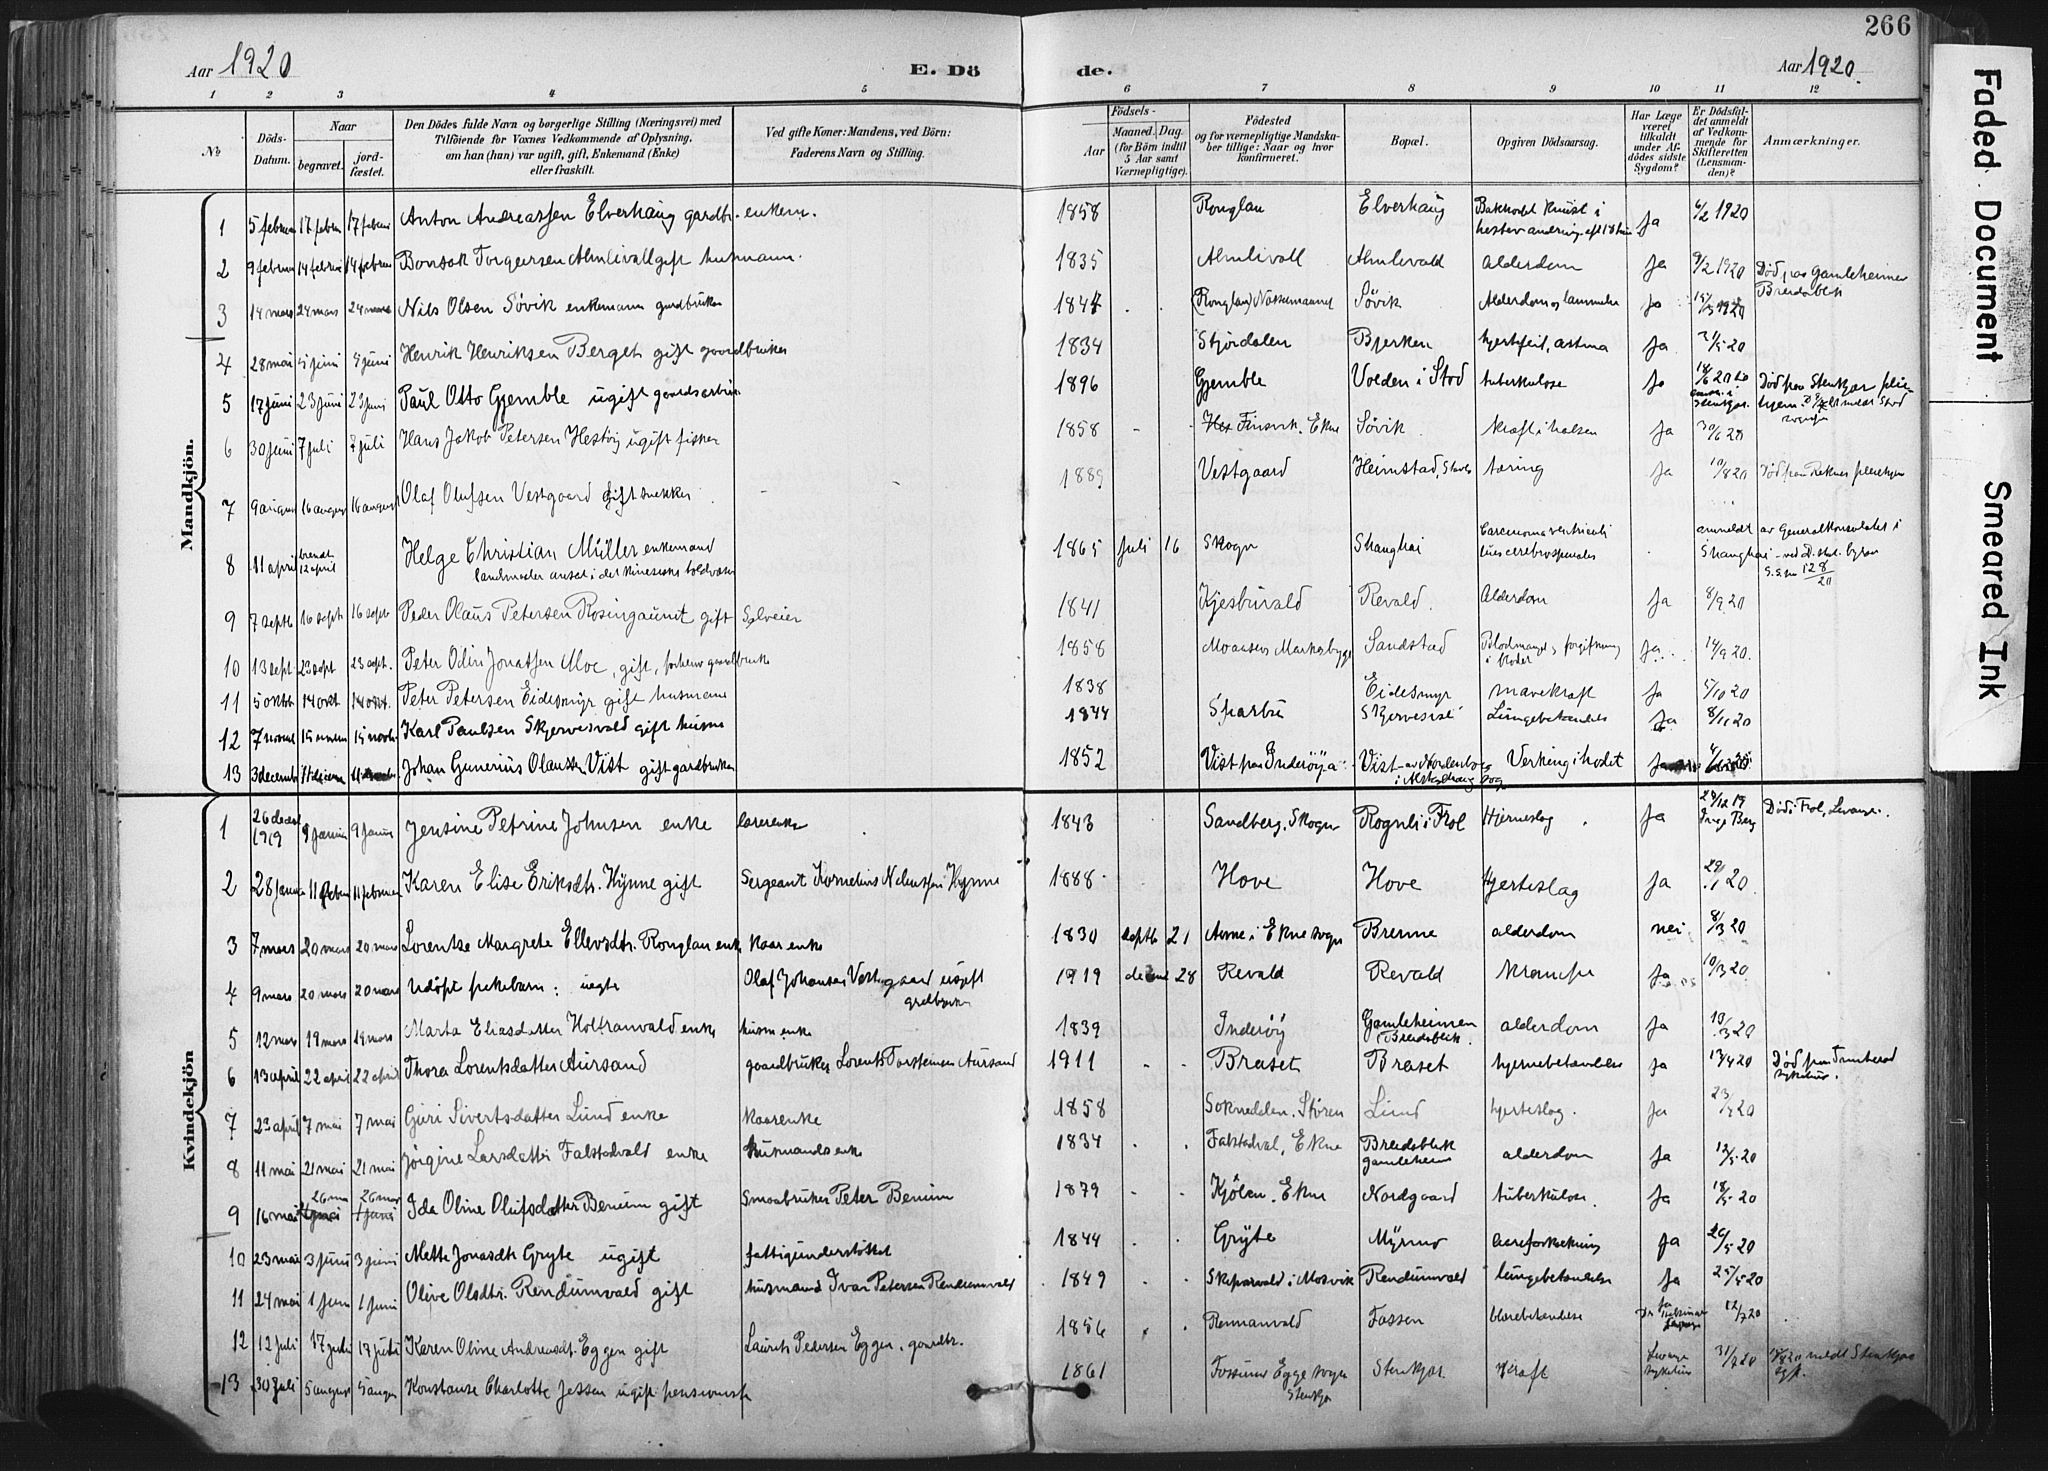 266
Aar 1920
E. Dö de.
Aar 1920.
1 2 3 4 5 6 7 8 9 10 11 12
No
Döds-Datum.
Naar
begravet.
jord-fæstet.
Den Dödes fulde Navn og borgerlige Stilling (Næringsvei) med
Tilföiende for Voxnes Vedkommende af Oplysning,
om han (hun) var ugift, gift, Enkemand (Enke)
eller fraskilt.
Ved gifte Koner: Mandens, ved Börn:
Faderens Navn og Stilling.
Födsels-
Aar
Maaned. Dag.
(for Börn indtil
5 Aar samt
Værnepligtige).
Födested
og for værnepligtige Mandska-
ber tillige: Naar og hvor
konfirmeret.
Bopæl.
Opgiven Dödsaarsag.
Har Læge
været
tilkaldt
under Af-
dödes sidste
Sygdom?
Er Dödsfal-
det anmeldt
af Vedkom-
mende for
Skifteretten
(Lensman-
den)?
Anmærkninger.
Mandkjön.
1 5 februar 17 febru 17 februar Anton Andreassen Elverhaug gardbr. enkem. 1858 Ronglan Elverhaug Ja 6/2 1920
2 9 februar 14 februar 14 februar Bonsak Torgersen Almlivall gift husmann. 1835 Almlivoll Almlivald Alderdom Ja 9/2 1920 Död paa Gamleheimen Breidablik
3 14 mars 24 mars 24 mars Nils Olsen Sövik enkemann gardbruker 1844 (Ronglan) Sövik Alderdom og lammelse Ja
4 28 mai 5 juni 5 juni Henrik Henriksen Berget gift gaardbruker 1834 Stjördalen Bjerken hjertefeil, astma Ja
5 17 juni 23 juni 23 juni Paul Otto Gjemble ugift gaardsarbei 1896 Gjemble Volden i Stod tuberkulose Ja Död paa Stenkjær pleie-hjem
6 30 juni 7 juli 7 juli Hans Jakob Petersen Hestøy ugift fisker 1858 Finsvik, Ekne Sövik kræft i halsen Ja 30/6 20
7 9 august 16 august 16 august Olaf Olufsen Vestgaard gift snekker 1889 Vestgaard Heimstad, Skogn tæring Ja 10/8 20 Död paa Reknes pleiehjem
8 11 april brendt 12 april Helge Christian Müller enkemand
landmaaler ansat i det kinesiske toldvæsen 1865 juli 16 Skogn Shanghai Carcinoma ventriculi
lues cerebrospinales anmeldt av Generalkonsulatet i
Shanghai - ved D. stat. byraa
128/20
9 7 septb 16 septb 16 septb Peder Olaus Petersen Rosingaunet gift Sølveier 1841 Kjesbuvald Revald. Alderdom Ja 8/9 20
10 13 sept 23 sept 23 sept. Peter Odin Jonassen Moe, gift, forhenv gaardbruker 1858 Markabygd Sandstad Blodmangel, forgiftning i blodet Ja 14/9 20.
11 5 oktbr 14 okt 14 okt. Peter Petersen Eidesmyr gift husmann 1838 Eidesmyr mavekræft Ja 5/10 20
12 7 novembr 15 novem 15 novbr. Karl Paulsen Skjervesvald gift husm 1844 Sparbu Lungebetændelse Ja 8/11 20
13 3 decemb 11 decem Johan Gunerius Olaussen Vist gift gardbruker 1852 Vist paa Inderöya Vist - av Nordenborg
i Alstadhaug sogn Verking i hodet Ja
Kvindekjön
1 26 decbr 1919 9 januar 9 januar Jensine Petrine Johnsen enke lærerenke 1843 Sandberg, Skogn Rognli i Frol Hjerneslag Ja 27/12 19 Død i Frol, Levanger.
2 28 januar 11 februar 11 februar Karen Elise Eriksdtr. Hynne gift Sergeant Kornelius Hynne 1888 Hove Hove Hjerteslag Ja 29/1 20
3 7 mars 20 mars 20 mars Lorentse Margrete Ellevsdtr. Ronglan enke kaarenke 1830 septb 21 Aasne i Ekne sogn Brenne alderdom nei 8/3 20
4 9 mars 20 mars 20 mars Udöpt pikebarn: uegte Olaf Johansen Vestgaard ugift
grdbruker 1919 decemb 28 Revald Revald krampe Ja 10/3 20
5 12 mars 19 mars 19 mars Marta Eliasdatter Holtranvald enke husm enke 1839 Inderöy Gamleheimen
Breidablik. alderdom Ja 13/3 20
6 13 april 22 april 22 april Thora Lorentsdatter Aursand gaardbruker Lorents Torsteinsen Aursand 1911 Braset Braset hjernebetændelse Ja 13/4 20 Död paa Trondheim sykehus.
7 23 april 7 mai 7 mai Guri Sivertsdatter Lund enke kaarenke 1858 Soknedalen, Stören Lund hjerteslag. Ja
8 11 mai 21 mai 21 mai Jörgine Larsdatter Falstadvald enke husmandsenke 1834 Falstadval, Ekne Breidablik
gamleheim alderdom Ja 12/5 20
9 16 mai 26 mai 26 mai Ida Oline Olufsdatter Benum gift Smaabruker Peter Benum 1879 Kjölen, Ekne Nordgaard tuberkulose. Ja 18/5 20
10 23 mai 3 juni 3 juni Mette Jonasdtr Gryte ugift fattigunderstöttet 1844 Gryte Myrmo aareforkalkning Ja 26/5 20
11 24 mai 1 juni 1 juni Olive Olsdtr. Rendumvald gift husmand Ivar Petersen Rendumvald 1849 Skjerrvald i Mosvik Rendumvald lungebetændelse Ja 25/5 20
12 12 juli 17 juli 17 juli Karen Oline Andreasdt. Eggen gift Laurits Pedersen Eggen, gaardbr. 1856 Rennanvald Fossen blærebetændelse 12/7 20
13 30 juli 5 august 5 august Konstanse Charlotte Jessen ugift pensionist 1861 Fossum Egge sogn
Stenkjær Stenkjær. Kræft Levanger sykehus 31/7 20
Faded Document
Smeared Ink